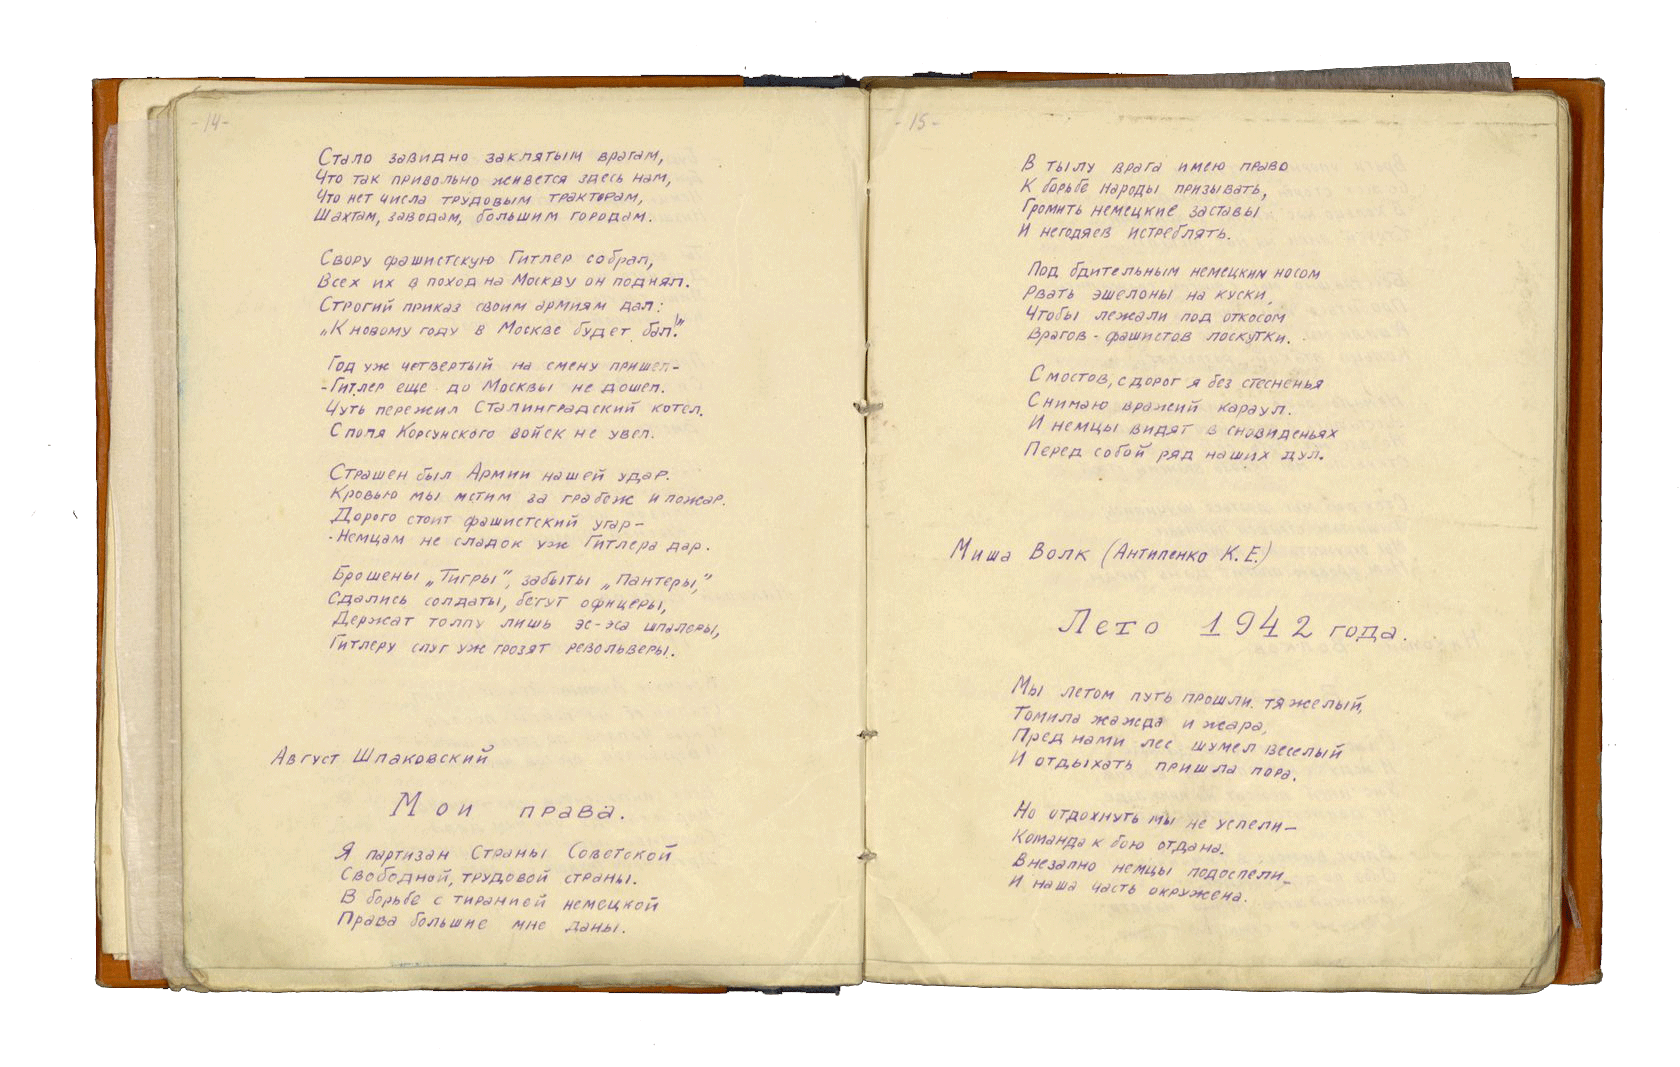 -14-
Стало завидно заклятым врагам,
Что так привольно живется здесь нам,
Что нет числа трудовым тракторам,
Шахтам, заводам, большим городам.
Свору фашистскую Гитлер собрал,
Всех их в поход на Москву он поднял.
Строгий приказ своим армиям дал:
„К новому году в Москве будет бал!"
Год уж четвертый на смену пришел-
-Гитлер еще до Москвы не дошел.
Чуть пережил Сталинградский котел.
С поля Корсунского войск не увел.
Страшен был Армии нашей удар.
Кровью мы мстим за грабеж и пожар.
Дорого стоит фашистский угар-
-Немцам не сладок уж Гитлера дар.
Брошены „Тигры", забыты „Пантеры",
Сдались солдаты, бегут офицеры,
Держат толпу лишь эс-эса шпалеры,
Гитлеру слуг уж грозят револьверы.
Август Шпаковский
Мои права.
Я партизан Страны Советской
Свободной, трудовой страны.
В борьбе с тиранией немецкой
Права большие мне даны.
-15-
В тылу врага имею право
К борьбе народы призывать,
Громить немецкие заставы
И негодяев истреблять.
Под бдительным немецким носом
Рвать эшелоны на куски,
Чтобы лежали под откосом
Врагов-фашистов лоскутки.
С мостов, с дорог я без стесненья
Снимаю вражий караул.
И немцы видят в сновиденьях
Перед собой ряд наших дул.
Миша Волк (Антипенко К.Е.)
Лето 1942 года.
Мы летом путь прошли тяжелый,
Томила жажда и жара,
Пред нами лес шумел веселый
И отдыхать пришла пора.
Но отдохнуть мы не успели-
Команда к бою отдана.
Внезапно немцы подоспели-
И наша часть окружена.